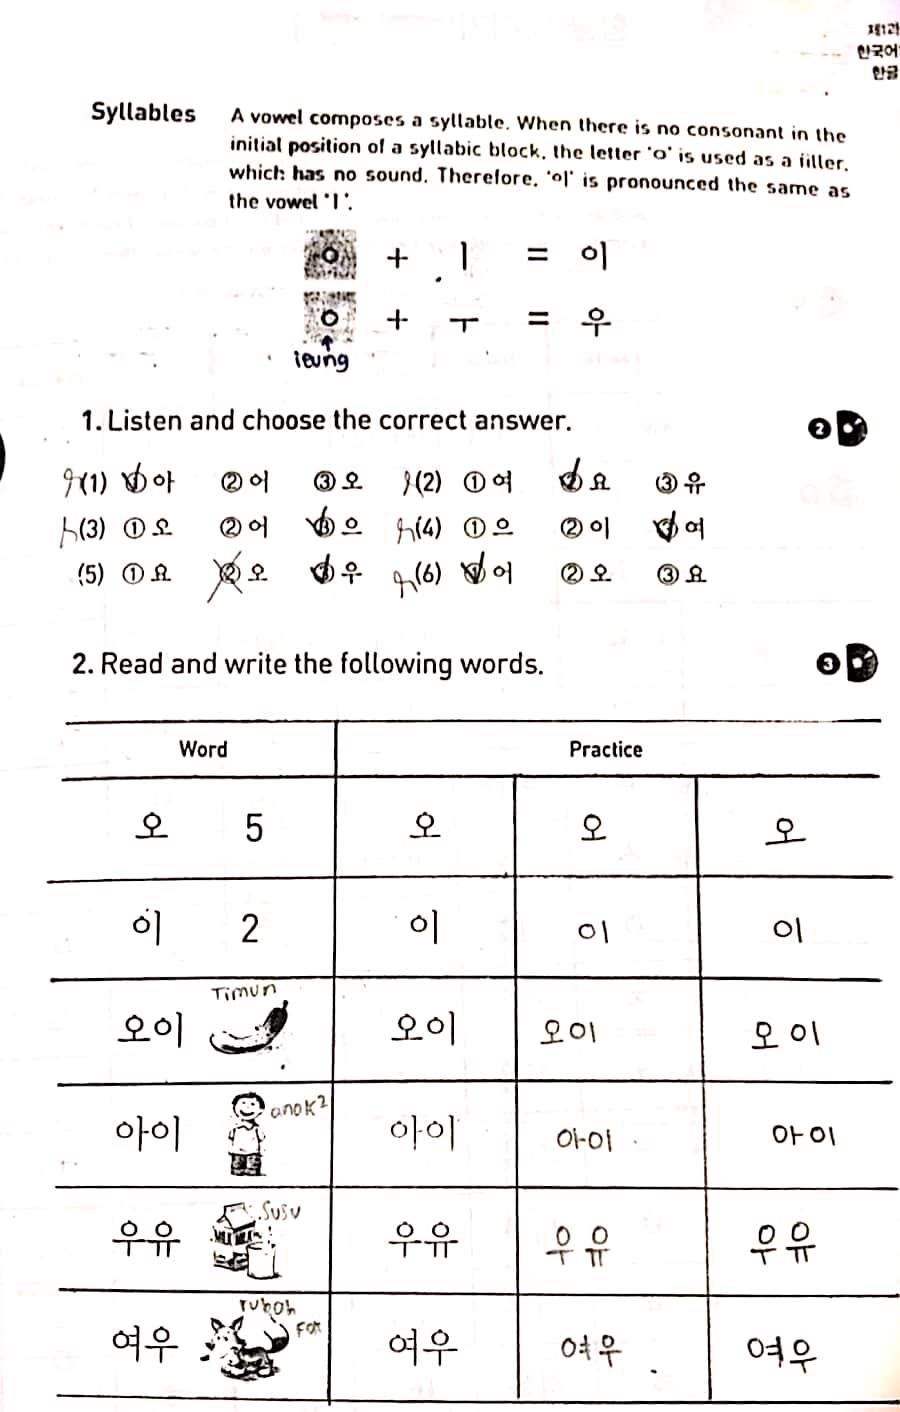 제1과
한국어
한글
Syllables A vowel composes a syllable. When there is no consonant in the
initial position of a syllabic block, the letter 'ㅇ' is used as a filler,
which has no sound. Therefore, '이' is pronounced the same as
the vowel 'ㅣ'.
ㅇ + ㅣ = 이
ㅇ + ㅜ = 우
ieung
1. Listen and choose the correct answer. 2
(1) ① 아 ② 어 ③ 오 (2) ① 여 ② 요 ③ 유
(3) ① 오 ② 어 ③ 으 (4) ① 으 ② 이 ③ 여
(5) ① 요 ② 오 ③ 우 (6) ① 어 ② 오 ③ 요
2. Read and write the following words. 3
Word Practice
오 5 오 오 오
이 2 이 이 이
Timun
오이 오이 오이 오이
anak2
아이 아이 아이 아이
susu
MILK MILK
우유 우유 우유 우유
rubah
fox
여우 여우 여우 여우